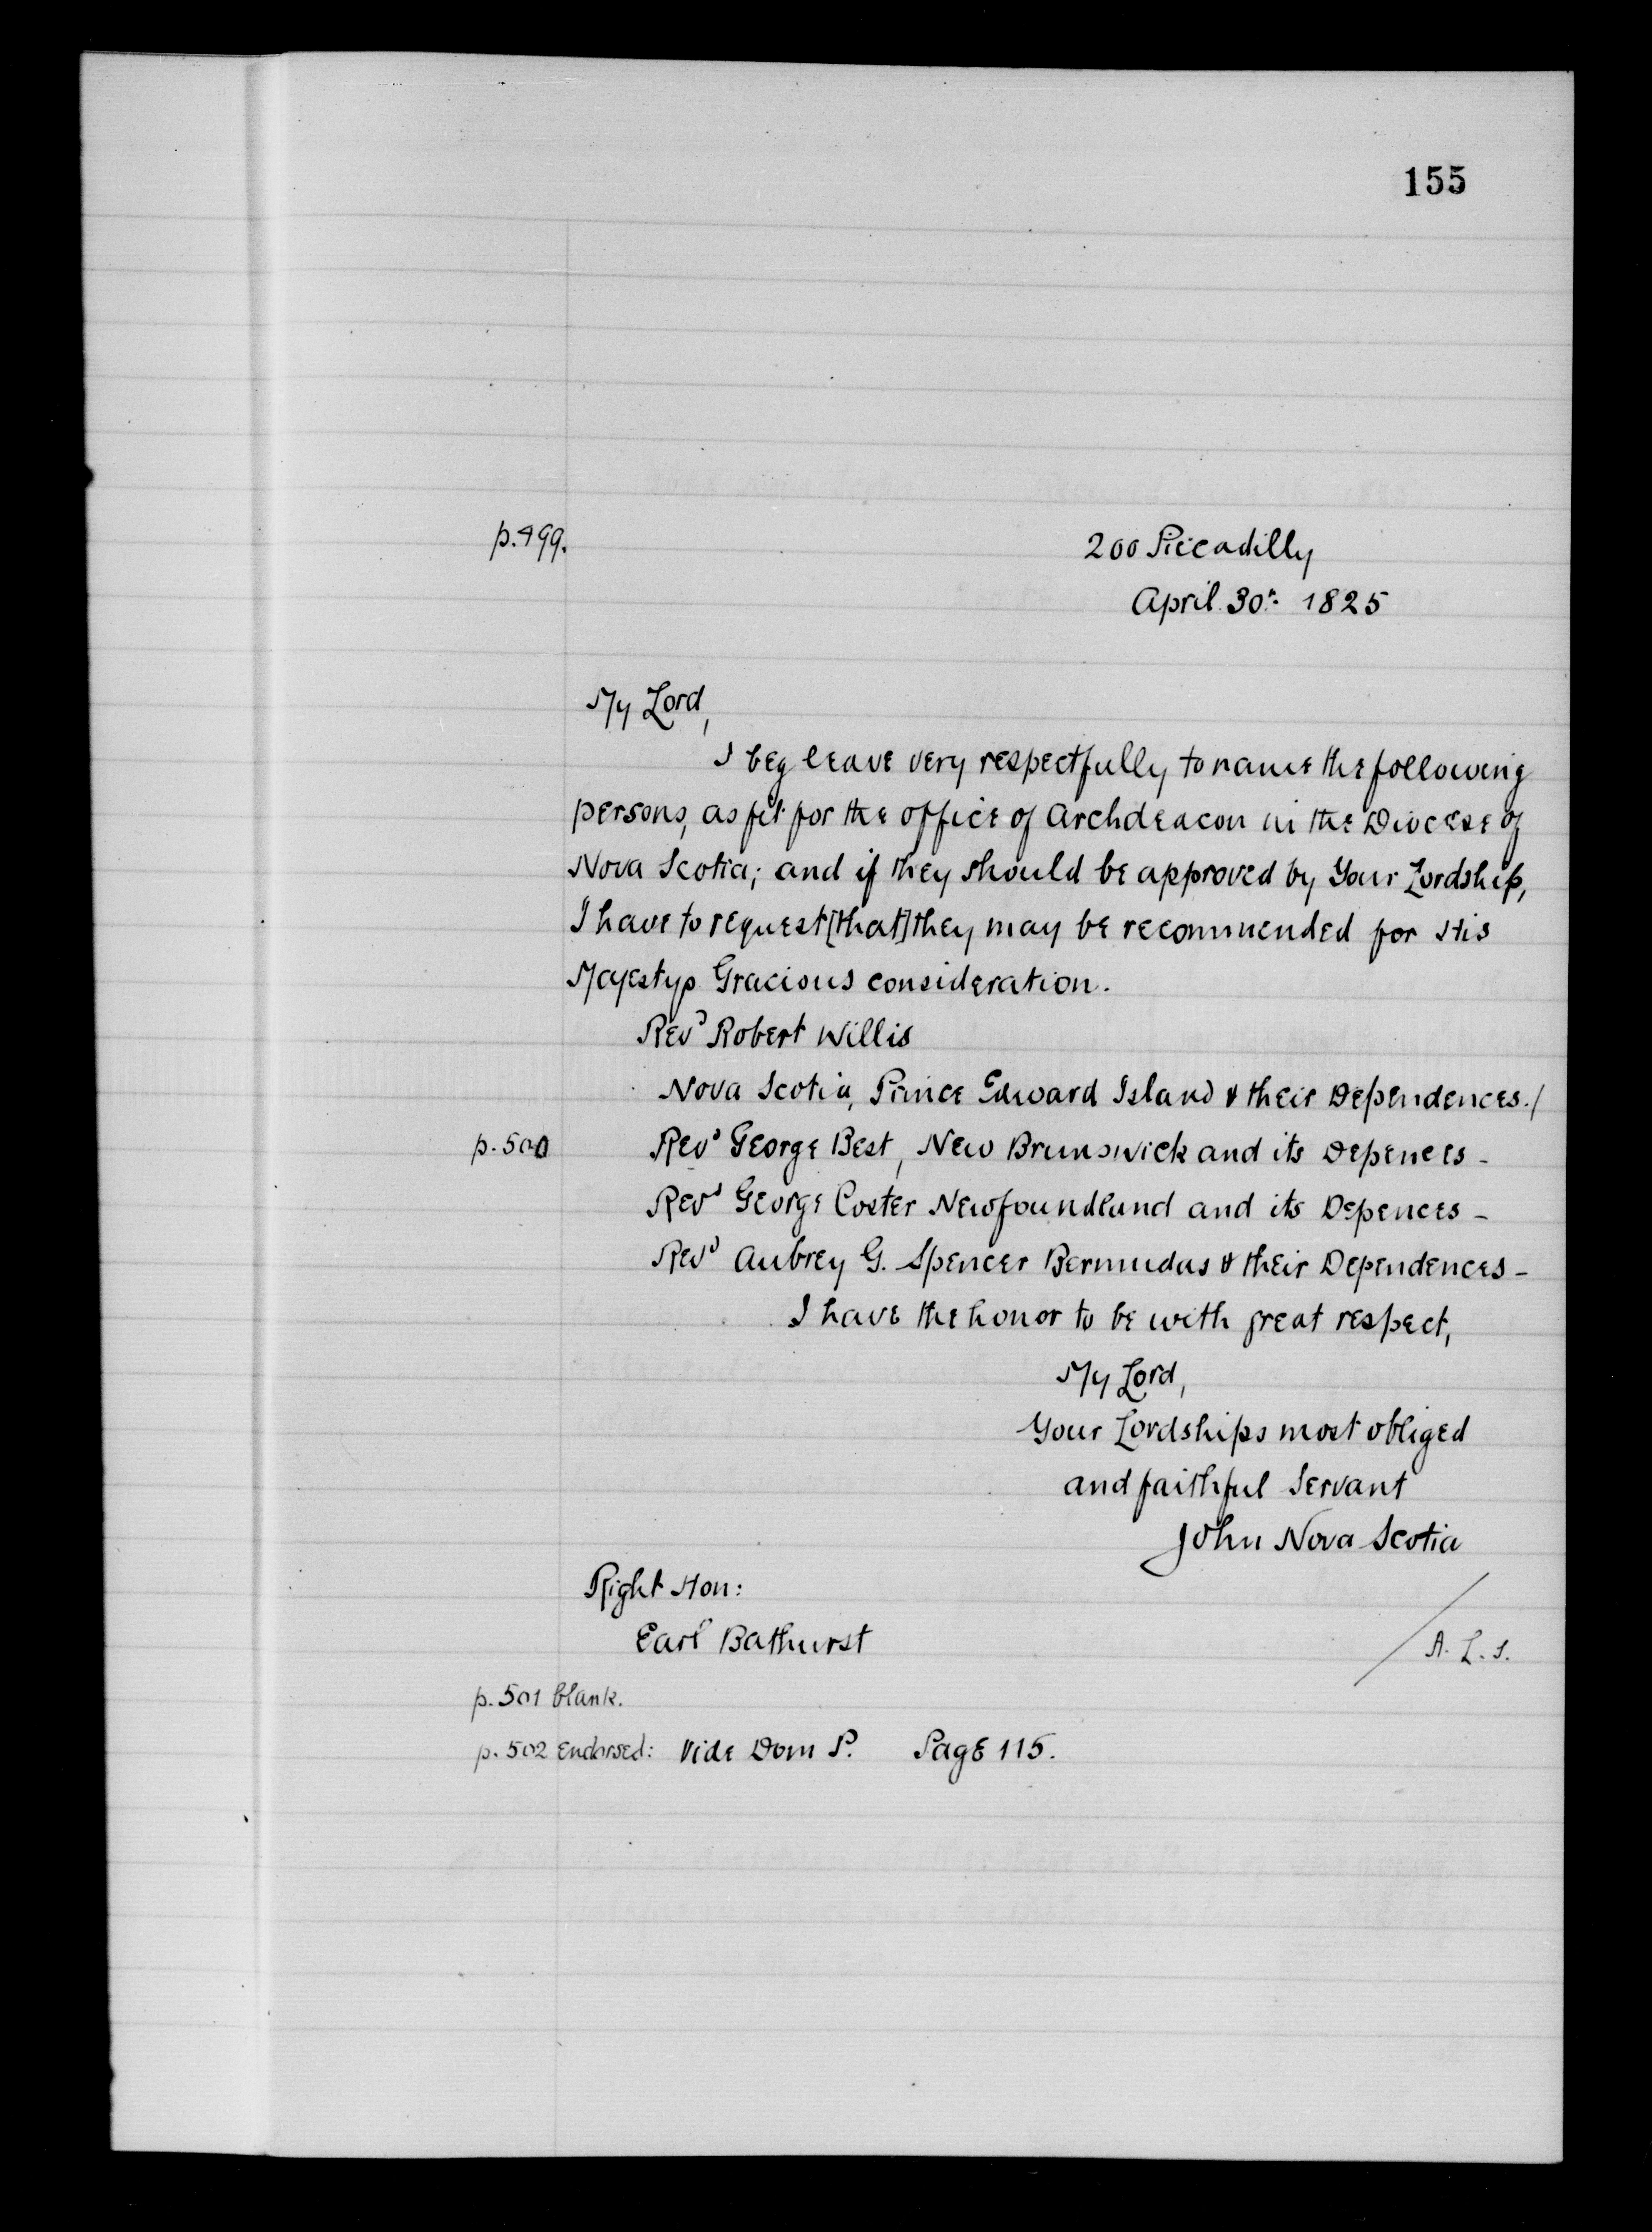 155
p. 499.
200 Piccadilly
April 30th 1825
My Lord,
I beg leave very respectfully to name the following
persons, as fit for the office of Archdeacon in the Diocese of
Nova Scotia; and if they should be approved by Your Lordship,
I have to request [that] they may be recommended for His
Majestys Gracious consideration.
Revd Robert Willis
Nova Scotia, Prince Edward Island & their Dependences./
p. 500 Revd George Best, New Brunswick and its Depences -
Revd George Coster Newfoundland and its Depences -
Revd Aubrey G. Spencer Bermudas & their Dependences -
I have the honor to be with great respect,
My Lord,
Your Lordships most obliged
and faithful Servant
John Nova Scotia
Right Hon:
Earl Bathurst
/ A. L. S.
p. 501 blank.
p. 502 endorsed: Vide Dom P. Page 115.